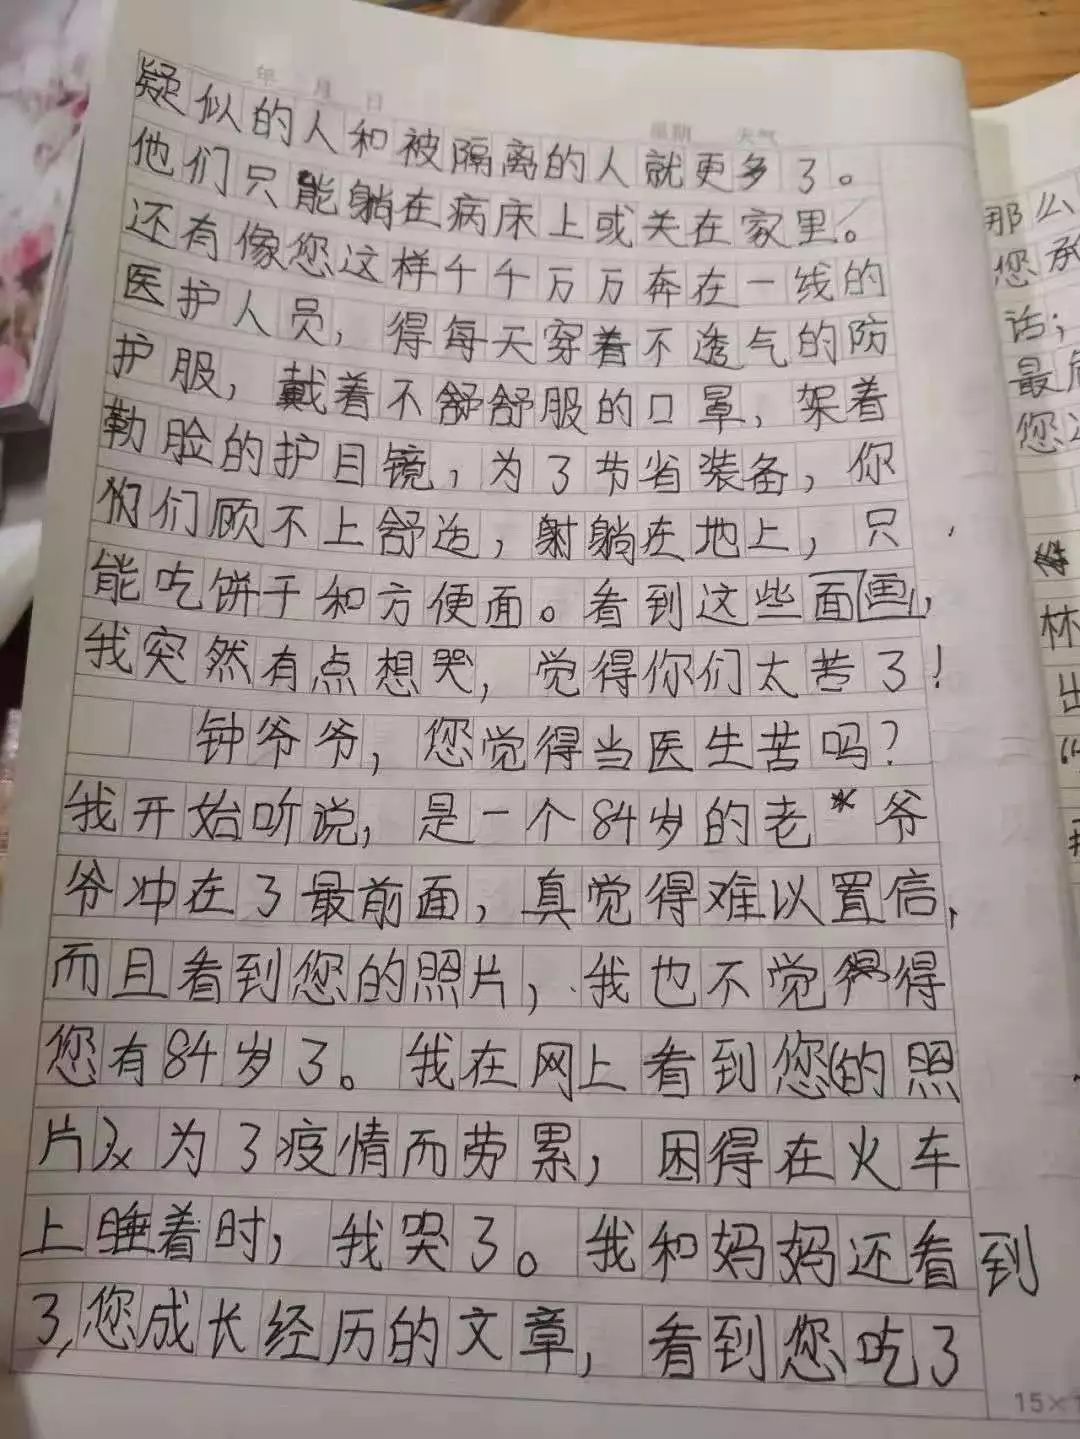 年 月 日
星期 天气
疑似的人和被隔离的人就更多了。
他们只能躺在病床上或关在家里。
还有像您这样千千万万奔在一线的
医护人员，得每天穿着不透气的防
护服，戴着不舒舒服的口罩，架着
勒脸的护目镜，为了节省装备，你
们们顾不上舒适，躺在地上，只
能吃饼干和方便面。看到这些面画，
我突然有点想哭，觉得你们太苦了！
钟爷爷，您觉得当医生苦吗？
我开始听说，是一个84岁的老*爷
爷冲在了最前面，真觉得难以置信，
而且看到您的照片，我也不觉得
您有84岁了。我在网上看到您的照
片为了疫情而劳累，困得在火车
上睡着时，我哭了。我和妈妈还看到
了，您成长经历的文章，看到您吃了
15×1
那么
您承
话；
最后
您
林
出